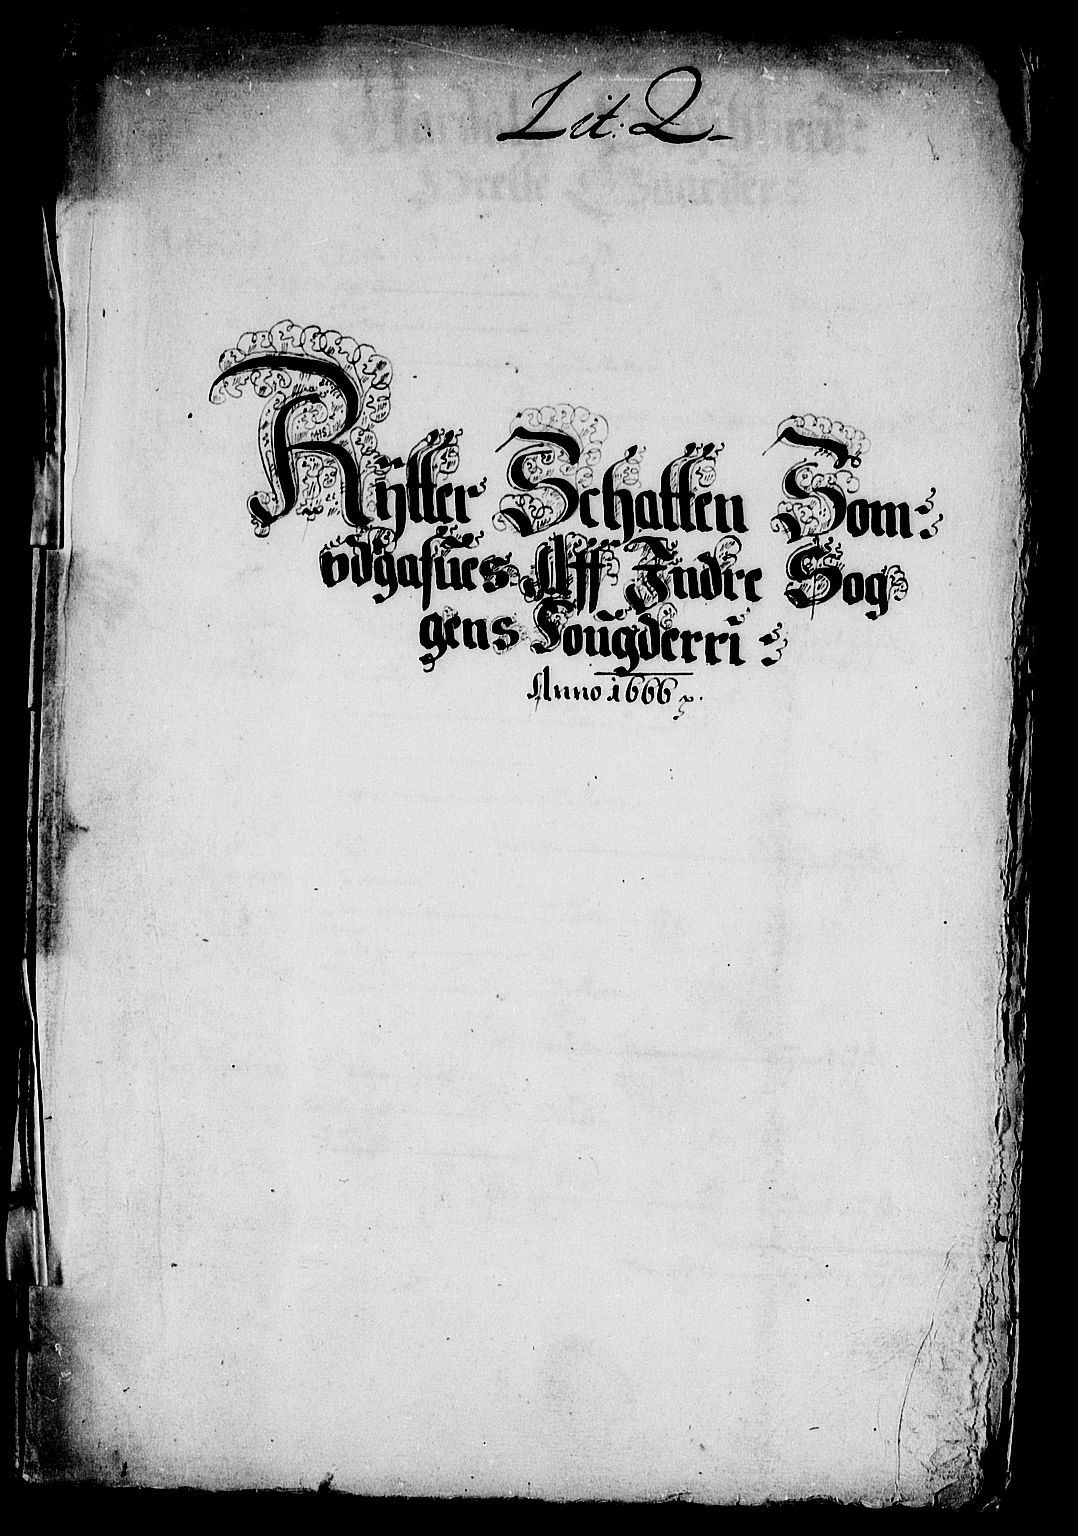 Lit: Q.
Rÿtter Schatten Som:
vdgafues Aff Indre Sog
gens Fougderri :
Anno 1666